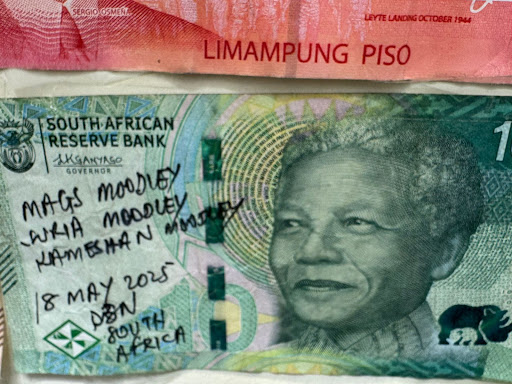 SERGIO OSMEÑA
LEYTE LANDING OCTOBER 1944
LIMAMPUNG PISO
SOUTH AFRICAN
RESERVE BANK
LKGANYAGO
GOVERNOR
MAGS MOODLEY
MOODLEY
KAMESHAN MOODLEY
18 MAY 2025
DBN
SOUTH
AFRICA
1
10